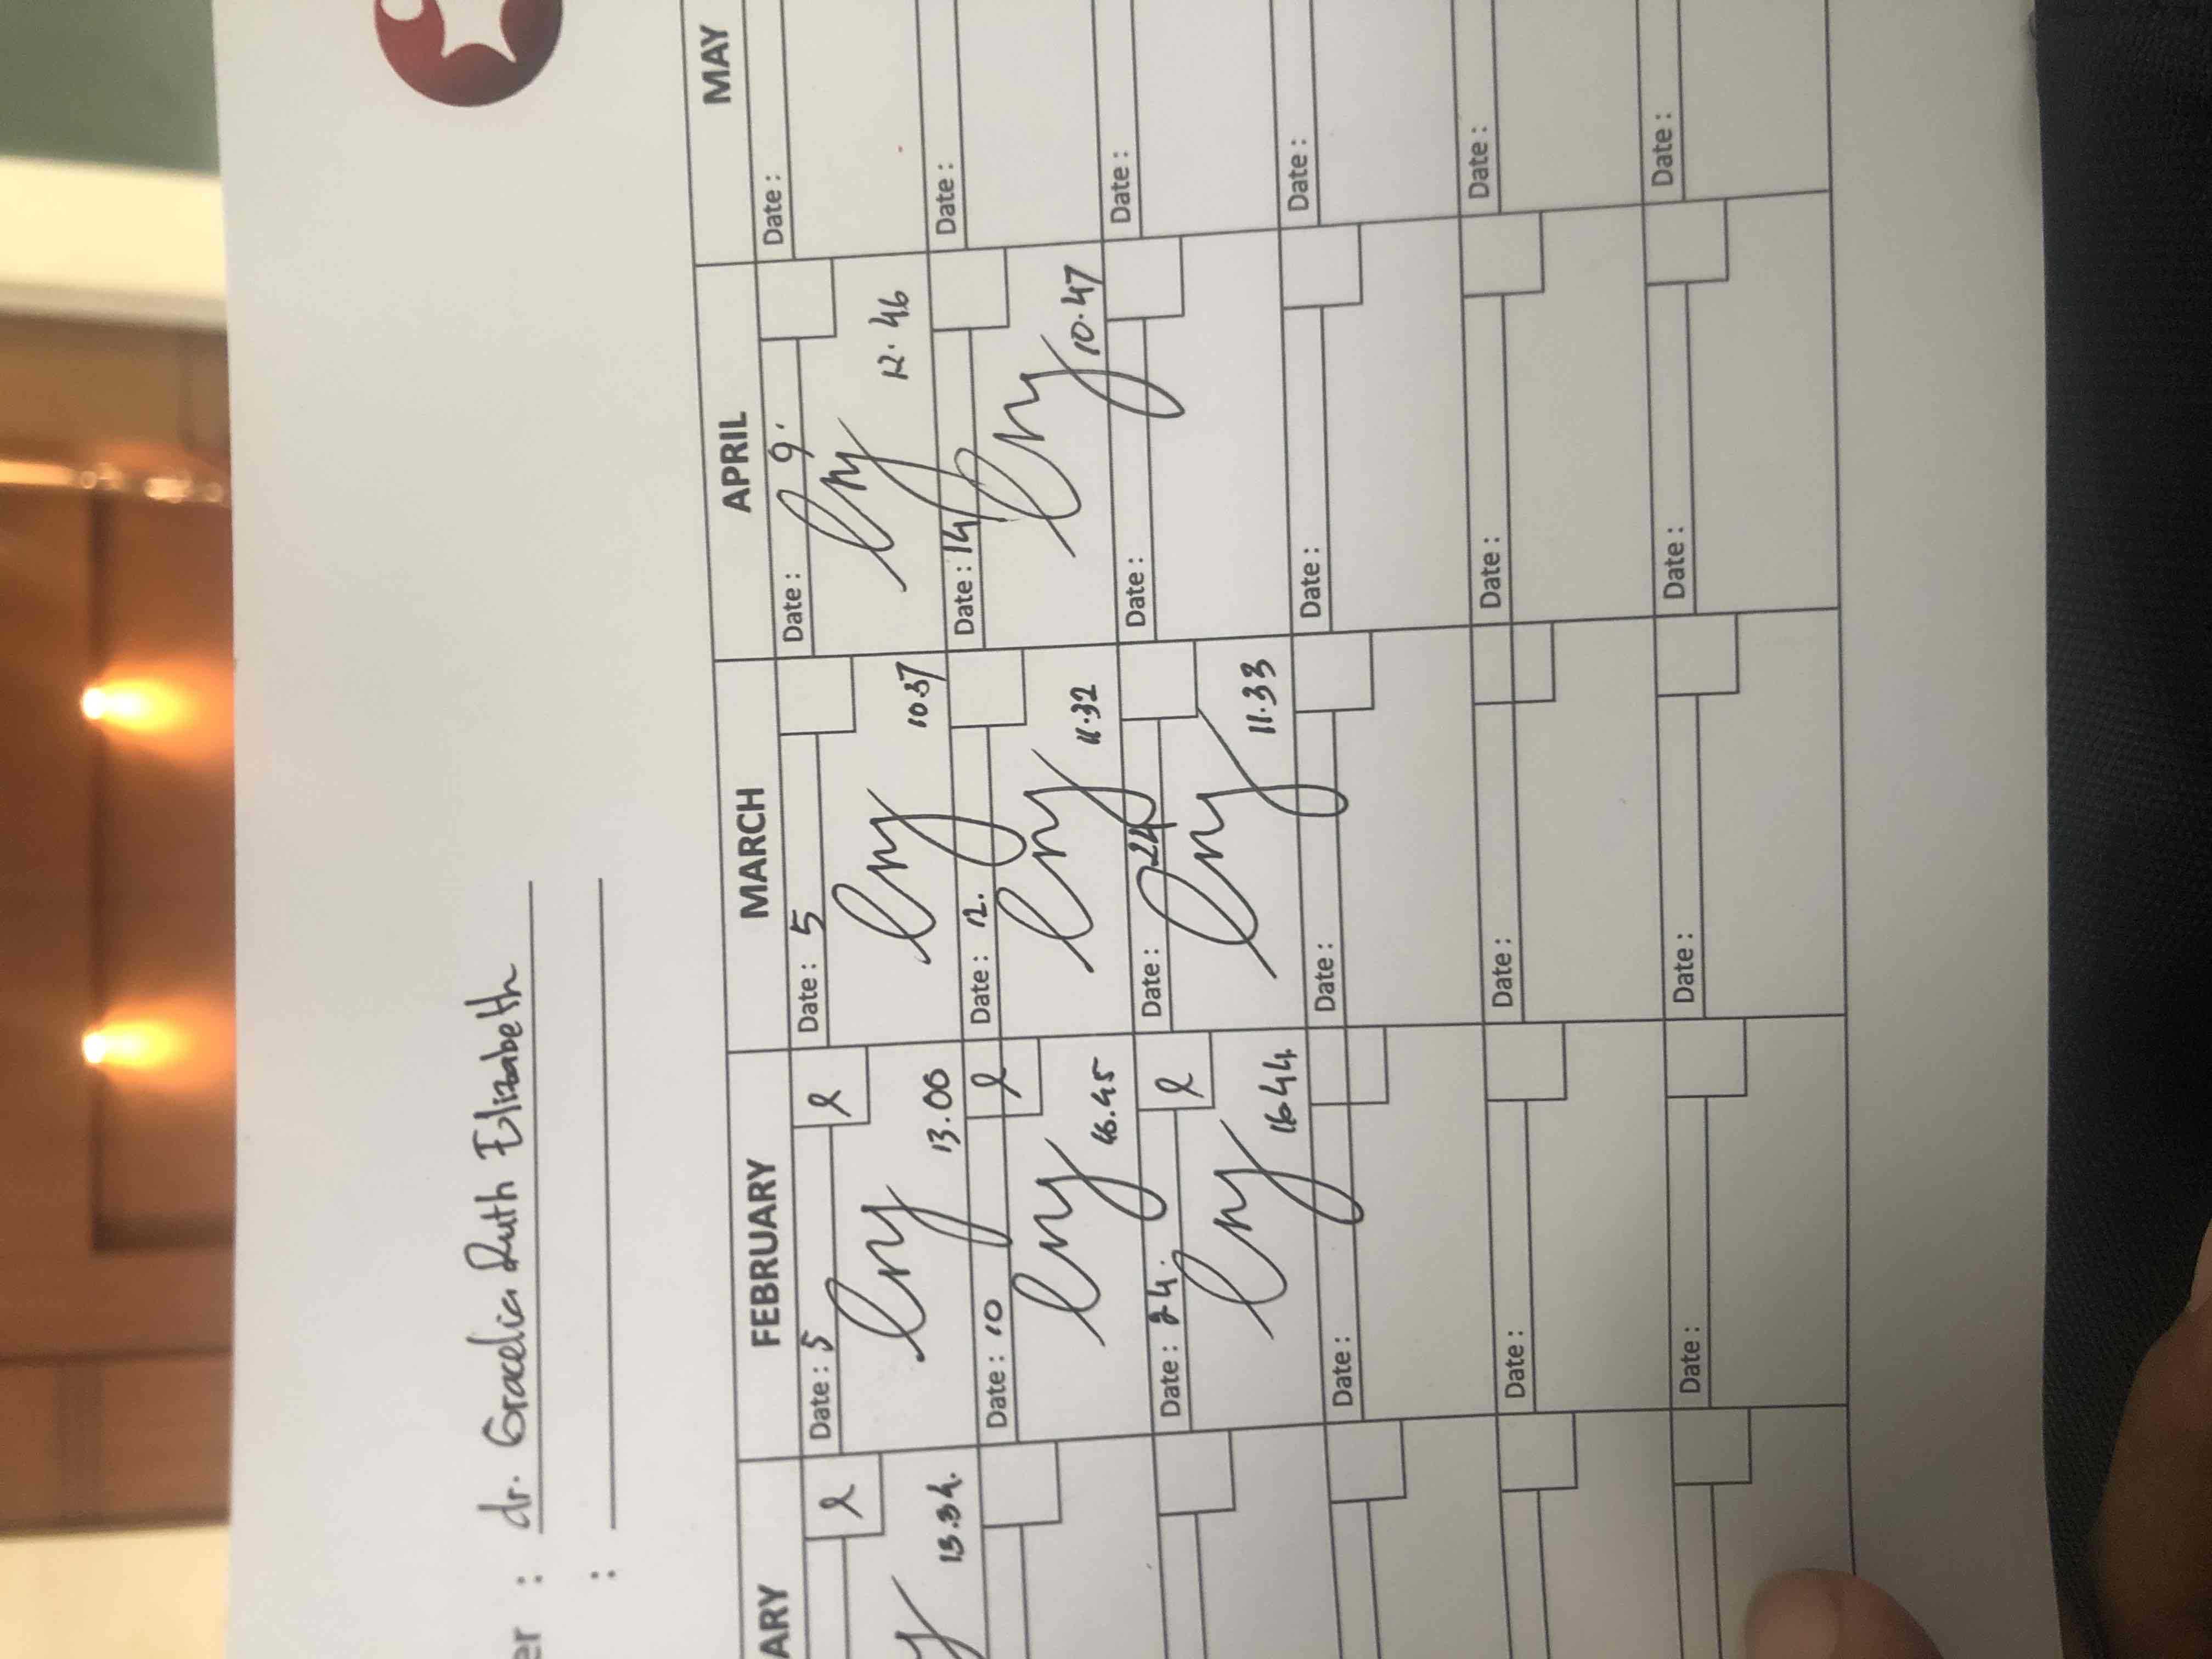 er : dr. Gracelia Ruth Elizabeth
:
ARY FEBRUARY MARCH APRIL MAY
Date : 5 Date : 5 Date : 9. Date :
13.34. 13.06 10.37 12.46
Date : 10 Date : 12. Date : 14 Date :
16.45 11.32 10.47
Date : 24. Date : 24 Date : Date :
16.44 11.33
Date : Date : Date : Date :
Date : Date : Date : Date :
Date : Date : Date : Date :